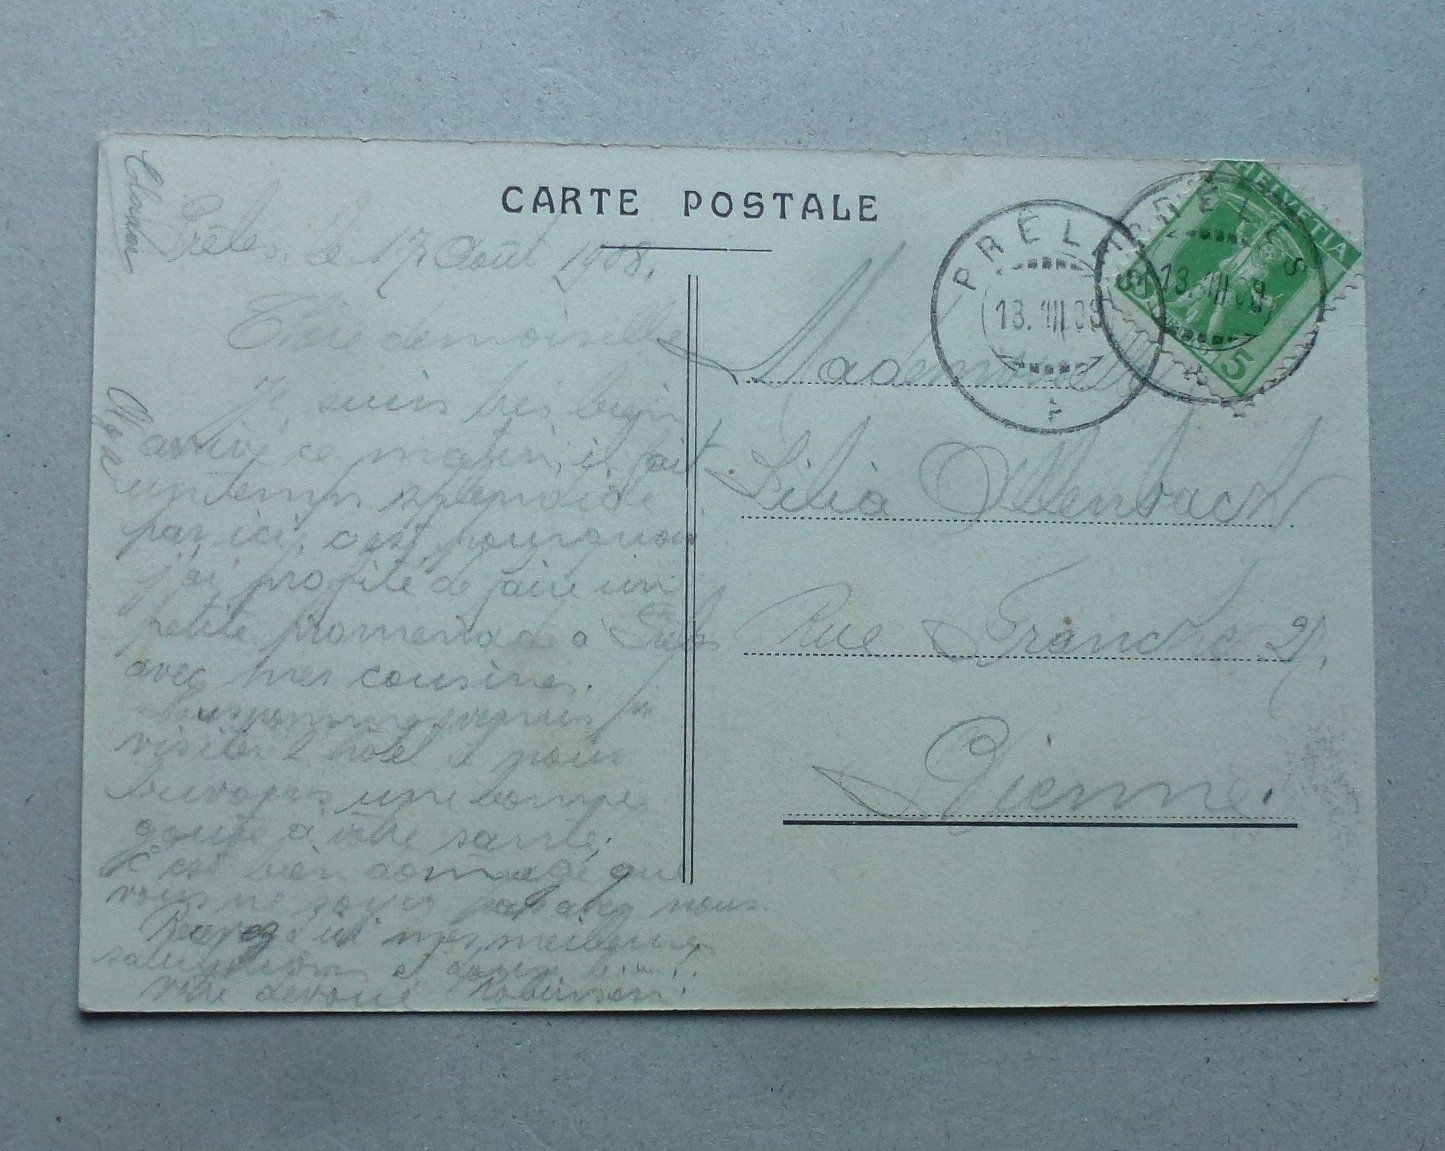 CARTE POSTALE
Prêles le 17 Août 1908.
Chère demoiselle
Je suis très bien
arrivé ce matin, il fait
un temps splendide
par ici, c'est pourquoi
j'ai profité de faire un
petite promenade à Prêles
avec mes cousines.
visiter l'hôtel et nous
buvons une
goutte à votre santé,
C'est bien domage que
vous ne soyez pas avec nous.
Recevez ici mes meilleures
salutations et
Votre dévoué
Mademoiselle
Lilia Allenbach
Rue Franche 27,
Bienne.
PRÊLES
13.VIII.08
PRÊLES
13.VIII.08
HELVETIA
5
5